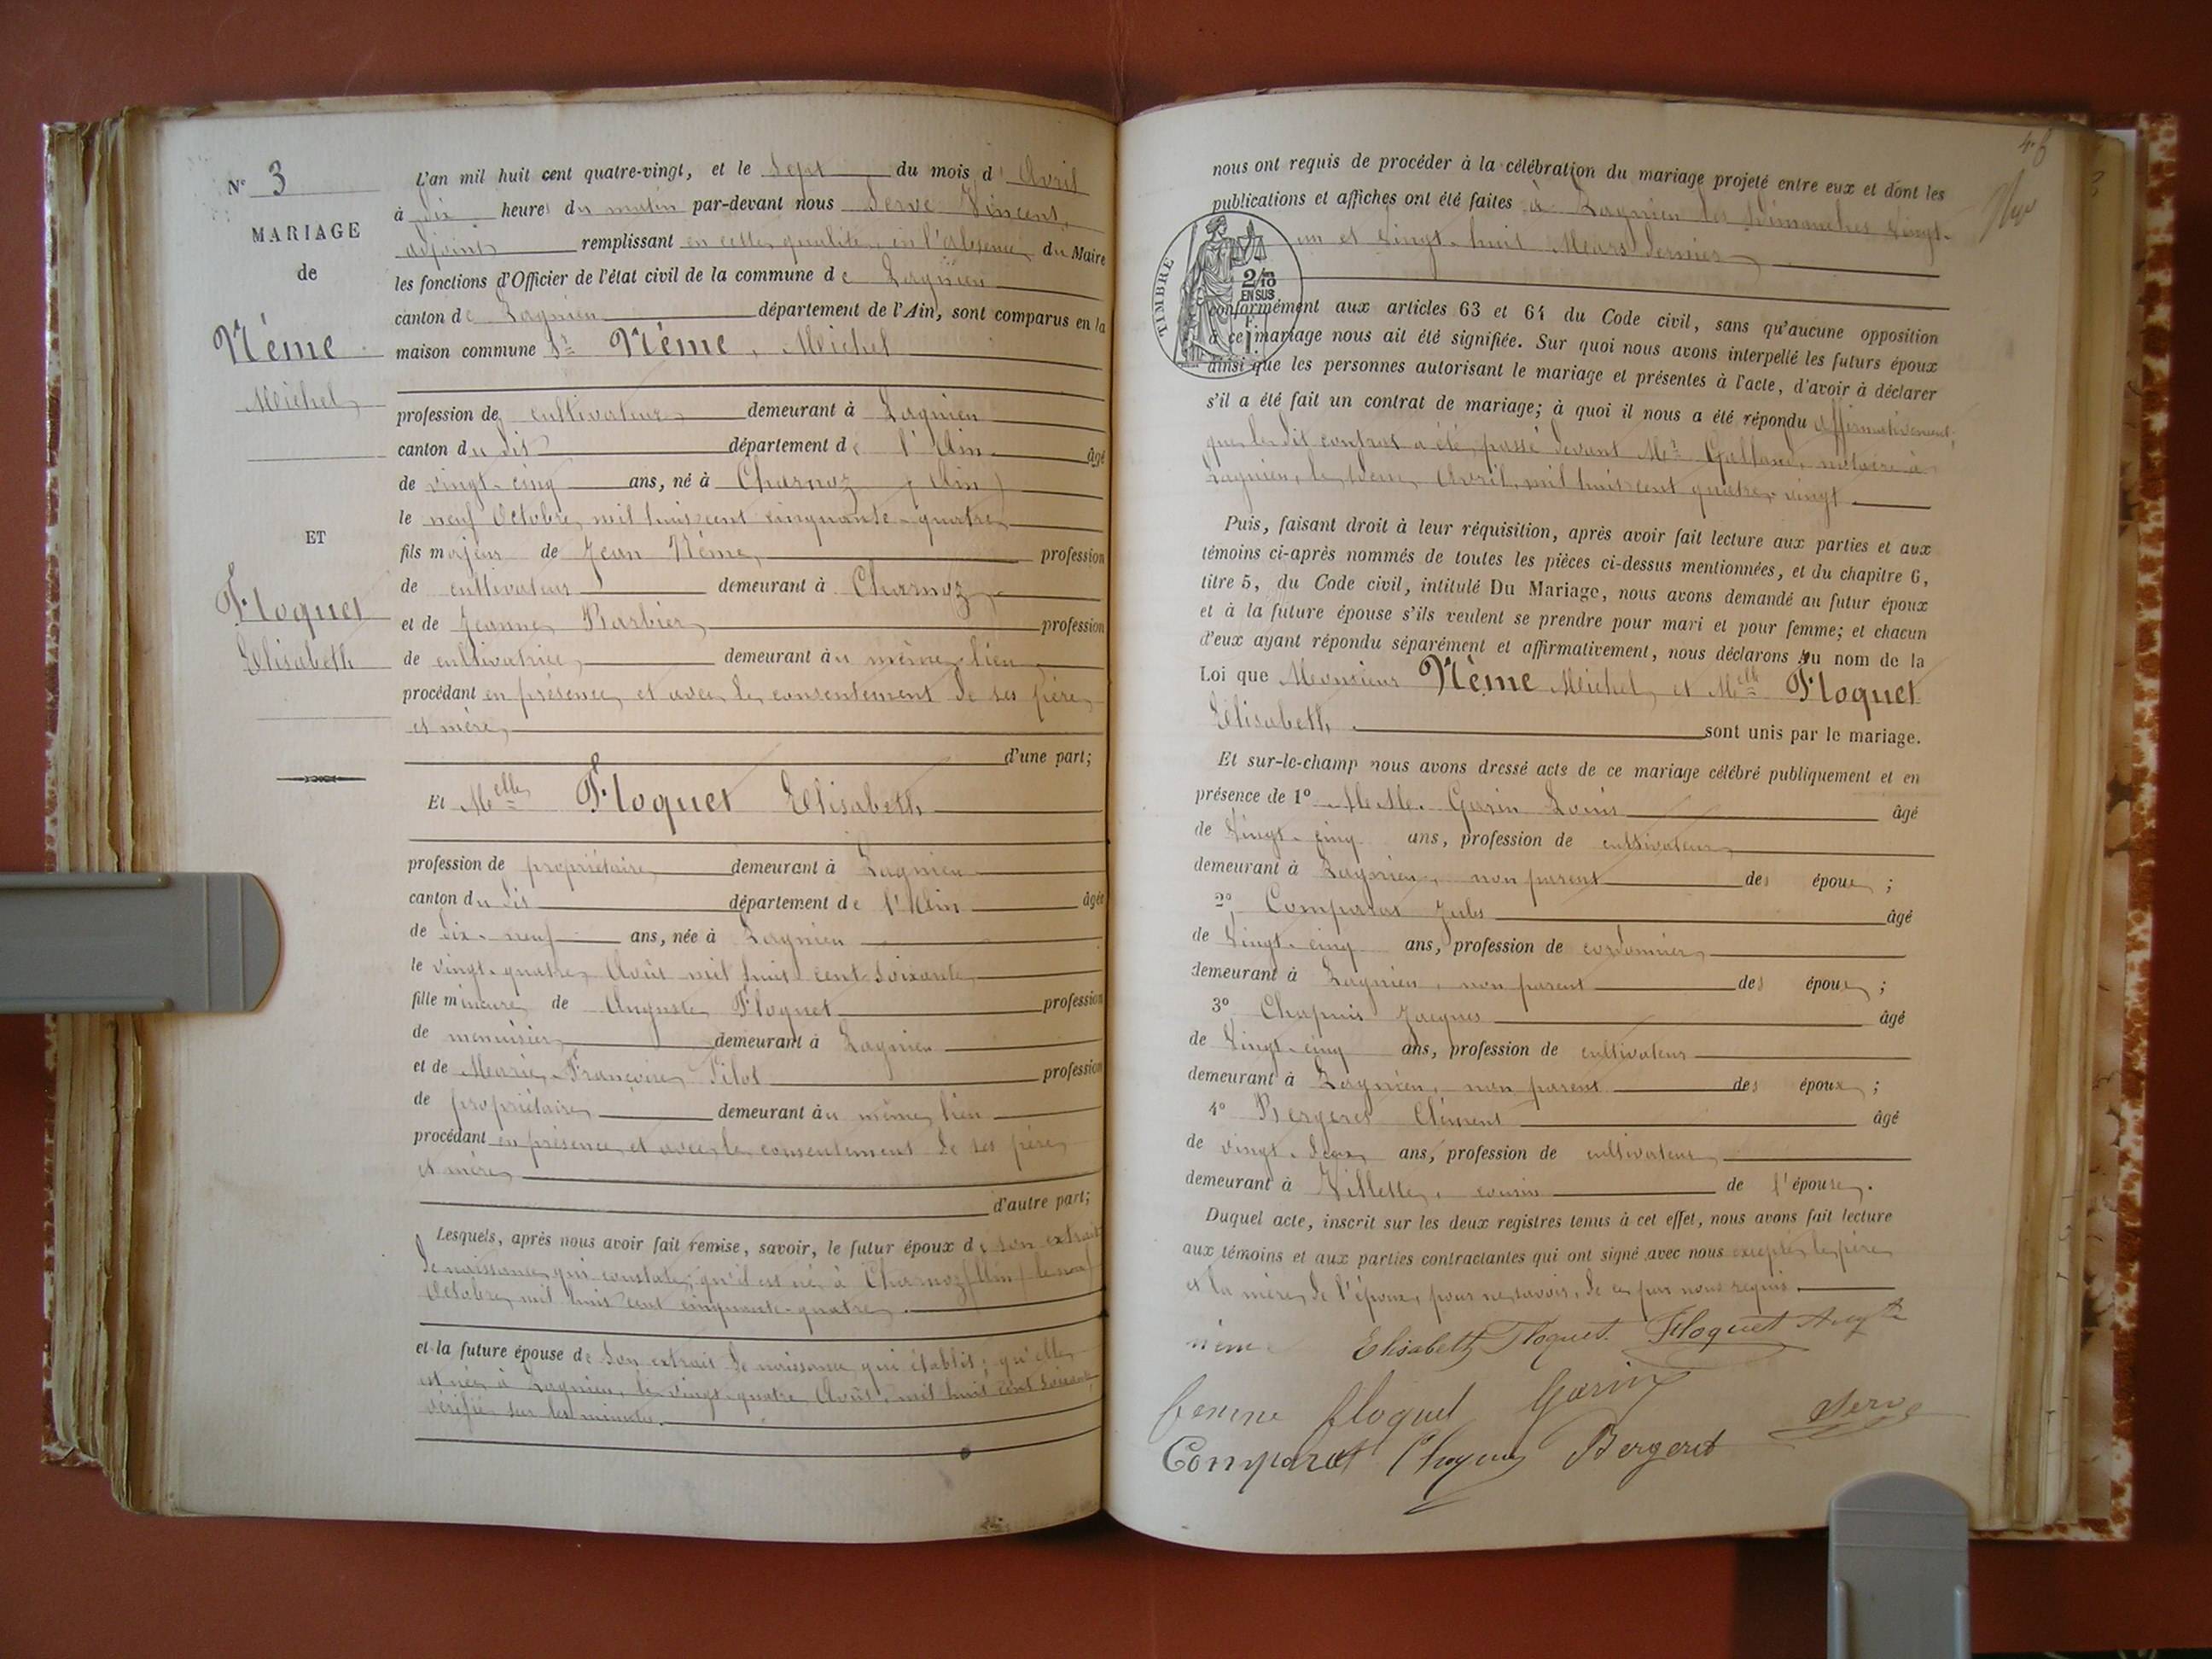 N° 3
MARIAGE
de
Néme
Michel
ET
Floquet
Elisabeth
L'an mil huit cent quatre-vingt, et le Sept du mois d'Avril
à dix heures du matin par-devant nous Serve Vincent,
adjoint remplissant en cette qualité, en l'absence du Maire
les fonctions d'Officier de l'état civil de la commune de Lagnieu
canton de Lagnieu département de l'Ain, sont comparus en la
maison commune Sr Néme, Michel
profession de cultivateur demeurant à Lagnieu
canton du dit département de l'Ain âgé
de vingt-cinq ans, né à Charnoz (Ain)
le neuf Octobre mil huit cent cinquante-quatre
fils majeur de Jean Néme, profession
de cultivateur demeurant à Charnoz,
et de Jeanne Barbier profession
de cultivatrice, demeurant au même lieu
procédant en présence et avec le consentement de ses père
et mère,
d'une part;
Et Melle Floquet Elisabeth
profession de propriétaire demeurant à Lagnieu
canton du dit département de l'Ain âgée
de dix-neuf ans, née à Lagnieu
le vingt-quatre Août mil huit cent soixante
fille mineure de Auguste Floquet profession
de menuisier demeurant à Lagnieu
et de Marie-Françoise Pilot profession
de propriétaire demeurant au même lieu
procédant en présence et avec le consentement de ses père
et mère
d'autre part;
Lesquels, après nous avoir fait remise, savoir, le futur époux de son extrait
de naissance qui constate qu'il est né à Charnoz (Ain) le neuf
Octobre mil huit cent cinquante-quatre.
et la future épouse de son extrait de naissance qui établit qu'elle
est née à Lagnieu, le vingt-quatre Août, mil huit cent soixante,
vérifié sur les minutes.
46
nous ont requis de procéder à la célébration du mariage projeté entre eux et dont les
publications et affiches ont été faites à Lagnieu les Dimanches vingt-
un et vingt-huit Mars dernier
TIMBRE
2/10
EN SUS
conformément aux articles 63 et 64 du Code civil, sans qu'aucune opposition
à ce mariage nous ait été signifiée. Sur quoi nous avons interpellé les futurs époux
ainsi que les personnes autorisant le mariage et présentes à l'acte, d'avoir à déclarer
s'il a été fait un contrat de mariage; à quoi il nous a été répondu affirmativement;
que le dit contrat a été passé devant Me Galland, notaire à
Lagnieu, le deux Avril, mil huit cent quatre-vingt
Puis, faisant droit à leur réquisition, après avoir fait lecture aux parties et aux
témoins ci-après nommés de toutes les pièces ci-dessus mentionnées, et du chapitre 6,
titre 5, du Code civil, intitulé Du Mariage, nous avons demandé au futur époux
et à la future épouse s'ils veulent se prendre pour mari et pour femme; et chacun
d'eux ayant répondu séparément et affirmativement, nous déclarons au nom de la
Loi que Monsieur Néme Michel et Melle Floquet
Elisabeth sont unis par le mariage.
Et sur-le-champ nous avons dressé acte de ce mariage célébré publiquement et en
présence de 1° M.M. Garin Louis âgé
de vingt-cinq ans, profession de cultivateur
demeurant à Lagnieu, non parent des époux;
2° Comparat Jules âgé
de vingt-cinq ans, profession de cordonnier
demeurant à Lagnieu, non parent des époux;
3° Chapuis Jacques âgé
de vingt-cinq ans, profession de cultivateur
demeurant à Lagnieu, non parent des époux;
4° Bergeret Clément âgé
de vingt-deux ans, profession de cultivateur
demeurant à Villette, cousin de l'épouse.
Duquel acte, inscrit sur les deux registres tenus à cet effet, nous avons fait lecture
aux témoins et aux parties contractantes qui ont signé avec nous excepté le père
et la mère de l'époux, pour ne savoir, de ce par nous requis.
néme Elisabeth Floquet. Floquet Augte
femme floquet Garin
Serve
Comparat Chapuis Bergeret